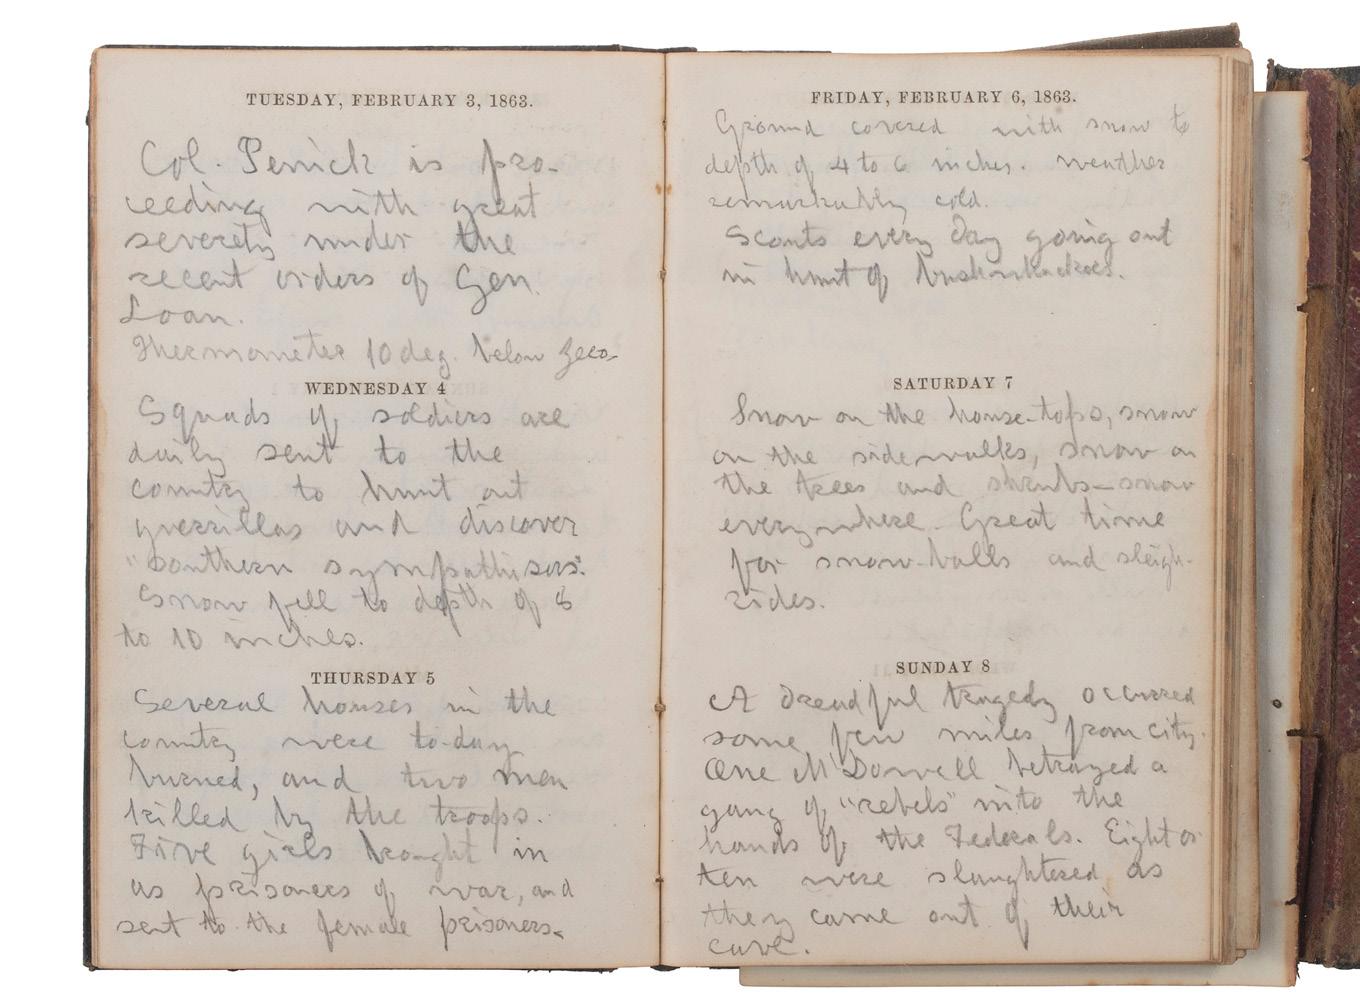 TUESDAY, FEBRUARY 3, 1863.
Col. Penick is pro-
ceeding with great
severety under the
recent orders of Gen.
Loan.
Thermometer 10 deg. below zero
WEDNESDAY 4
Squads of soldiers are
daily sent to the
country to hunt out
guerrillas and discover
"southern sympathisers".
Snow fell to depth of 8
to 10 inches.
THURSDAY 5
Several houses in the
country were to-day
burned, and two men
killed by the troops.
Five girls brought in
as prisoners of war, and
sent to the female prisoners.
FRIDAY, FEBRUARY 6, 1863.
Ground covered with snow to
depth of 4 to 6 inches. weather
remarkably cold.
Scouts every day going out
in hunt of bushwhackers.
SATURDAY 7
Snow on the house-tops, snow
on the sidewalks, snow on
the trees and shrubs—snow
everywhere. Great time
for snow-balls and sleigh-
rides.
SUNDAY 8
A dreadful tragedy occurred
some few miles from city.
One McDowell betrayed a
gang of "rebels" into the
hands of the Federals. Eight or
ten were slaughtered as
they came out of their
cave.